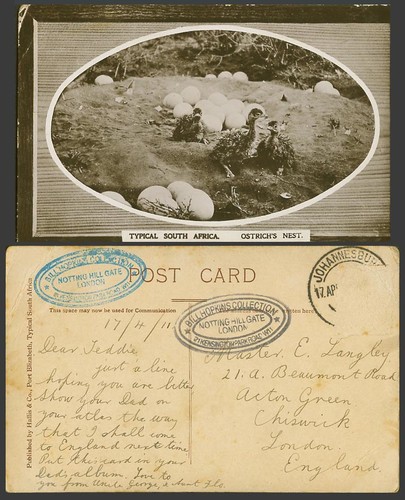 TYPICAL SOUTH AFRICA. OSTRICH'S NEST.
POST CARD
BILL HOPKINS COLLECTION
NOTTING HILL GATE
LONDON
JOHANNESBU
17 AP
This space may now be used for Communication
BILL HOPKINS COLLECTION
NOTTING HILL GATE
LONDON
KENSINGTON PARK ROAD W11
Published by Hallis & Co., Port Elizabeth, Typical South Africa
17/4/11
Dear Teddie,
just a line
hoping you are better
Show your Dad on
your atlas the way
that I shall come
to England next time
Put this card in your
Dad's album. Love to
you from Uncle George & Aunt Flo.
Master. E. Langley
21. A. Beaumont Road
Acton Green
Chiswick
London.
England.